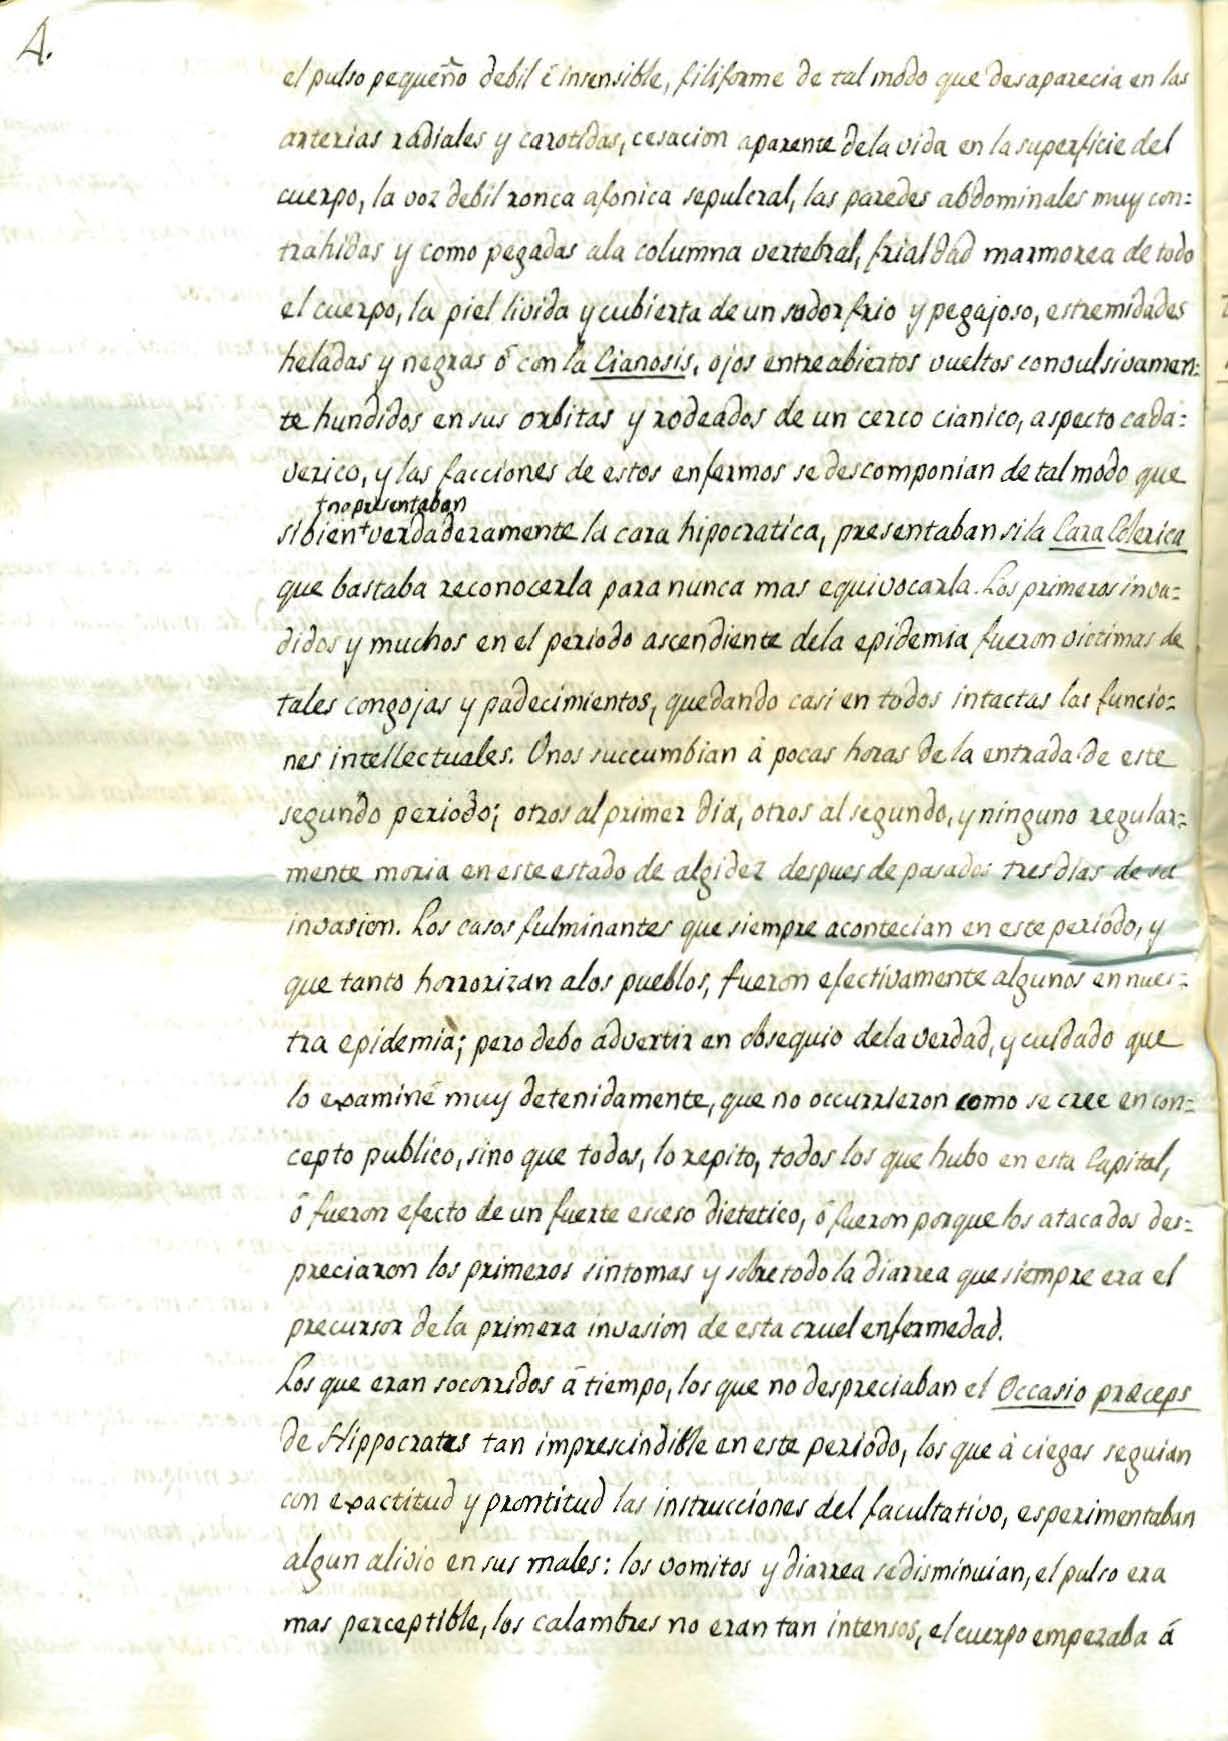 4.
el pulso pequeño debil é insensible, filiforme de tal modo que desaparecia en las
arterias radiales y carotidas, cesacion aparente dela vida en la superficie del
cuerpo, la voz debil ronca afonica sepulcral, las paredes abdominales muy con=
trahidas y como pegadas ala columna vertebral, frialdad marmorea de todo
el cuerpo, la piel livida y cubierta de un sudor frio y pegajoso, estremidades
heladas y negras ó con la Cianosis, ojos entreabiertos vueltos convulsivamen=
te hundidos en sus orbitas y rodeados de un cerco cianico, aspecto cada=
verico, y las facciones de estos enfermos se descomponian de tal modo que
+no presentaban
si bien + verdaderamente la cara hipocratica, presentaban si la Cara Colerica
que bastaba reconocerla para nunca mas equivocarla. Los primeros inva=
didos y muchos en el periodo ascendiente dela epidemia fueron victimas de
tales congojas y padecimientos, quedando casi en todos intactas las funcio=
nes intellectuales. Unos succumbian à pocas horas de la entrada de este
segundo periodo; otros al primer dia, otros al segundo, y ninguno regular=
mente moria en este estado de algidez despues de pasados tres dias de su
invasion. Los casos fulminantes que siempre acontecian en este periodo, y
que tanto horrorizan alos pueblos, fueron efectivamente algunos en nues=
tra epidemia; pero debo advertir en obsequio dela verdad, y cuidado que
lo examiné muy detenidamente, que no occurrieron como se cree en con=
cepto publico, sino que todos, lo repito, todos los que hubo en esta Capital,
ó fueron efecto de un fuerte esceso dietetico, ó fueron porque los atacados des=
preciaron los primeros sintomas y sobre todo la diarrea que siempre era el
precursor de la primera invasion de esta cruel enfermedad.
Los que eran socorridos á tiempo, los que no despreciaban el Occasio præceps
de Hippocrates tan imprescindible en este periodo, los que à ciegas seguian
con exactitud y prontitud las instrucciones del facultativo, esperimentaban
algun alivio en sus males: los vomitos y diarrea se disminuian, el pulso era
mas perceptible, los calambres no eran tan intensos, el cuerpo empezaba á